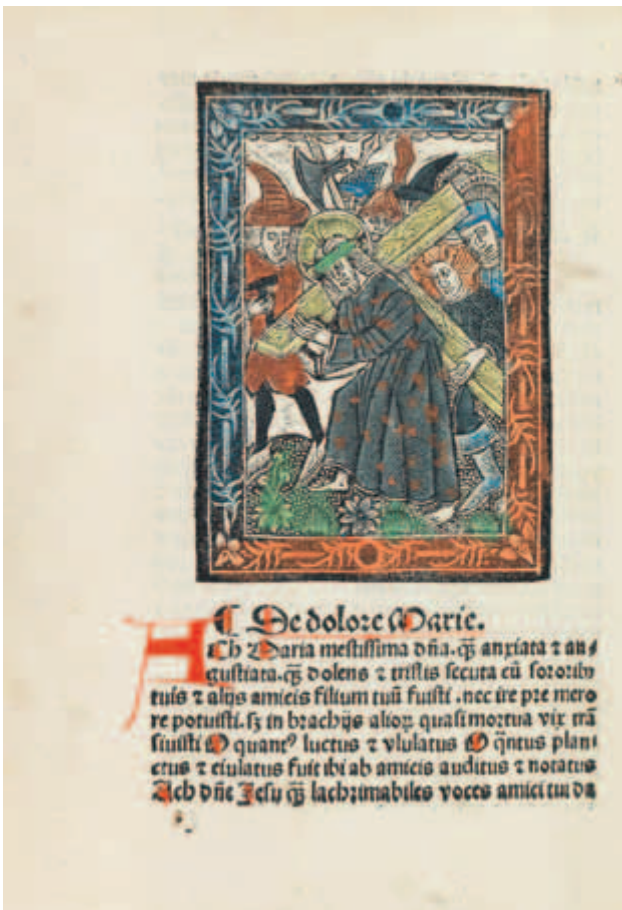 ¶ De dolore Marie.
ACh Maria mestissima dña. q̃ʒ anxiata ⁊ an⸗
gustiata. q̃ʒ dolens ⁊ tristis secuta cũ sororibꝰ
tuis ⁊ alijs amicis filium tuũ fuisti . nec ire pre mero
re potuisti. sʒ in brachijs alioꝝ quasi mortua vix trã
siuisti O quantꝰ luctus ⁊ vlulatus O q̃ntus plan⸗
ctus ⁊ eiulatus fuit ibi ab amicis auditus ⁊ notatus
Ach dñe Jesu q̃ʒ lachrimabiles voces amici tui da